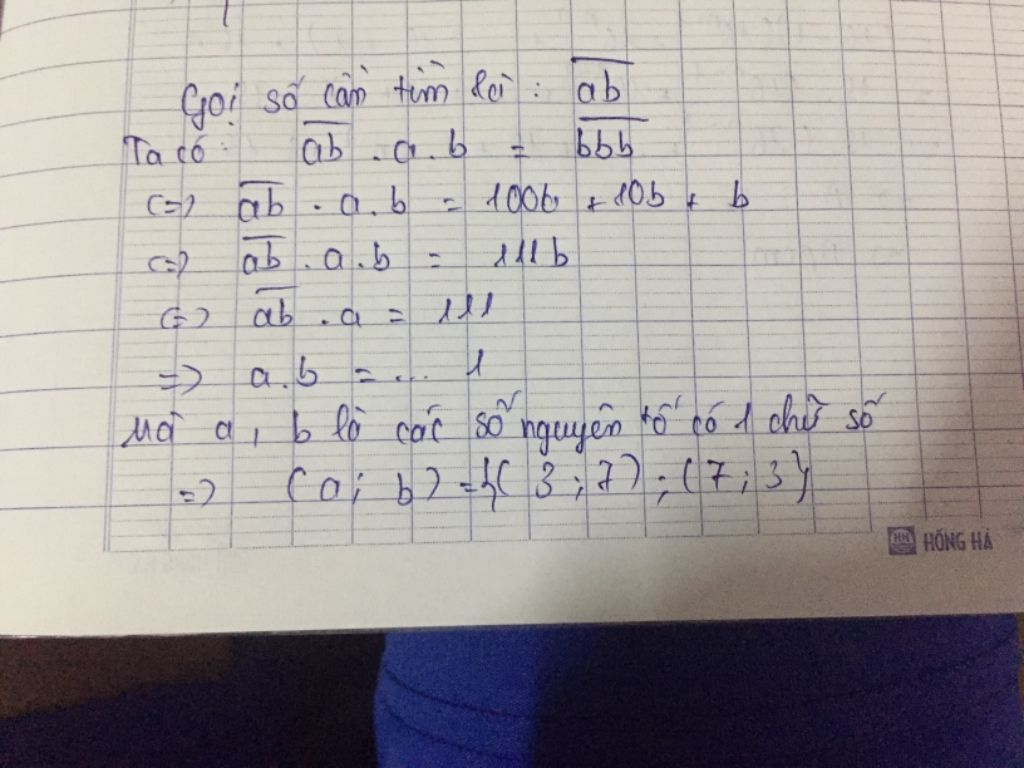 Gọi số cần tìm là : a̅b̅
Ta có: a̅b̅ . a . b = b̅b̅b̅
<=> a̅b̅ . a . b = 100b + 10b + b
<=> a̅b̅ . a . b = 111b
<=> a̅b̅ . a = 111
=> a . b = ... 1
Mà a, b là các số nguyên tố có 1 chữ số
=> (a ; b) = {( 3 ; 7) ; (7 ; 3}
HH HỒNG HÀ